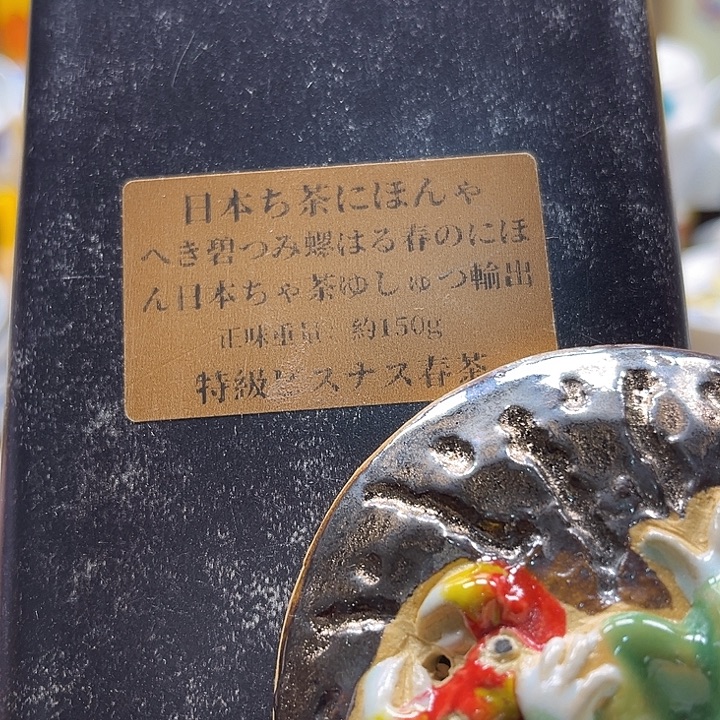 日本ち茶にほんゃ
へき碧つみ螺はる春のにほ
ん日本ちゃ茶ゆしゅつ輸出
正味重量：約150g
特級ビスナス春茶